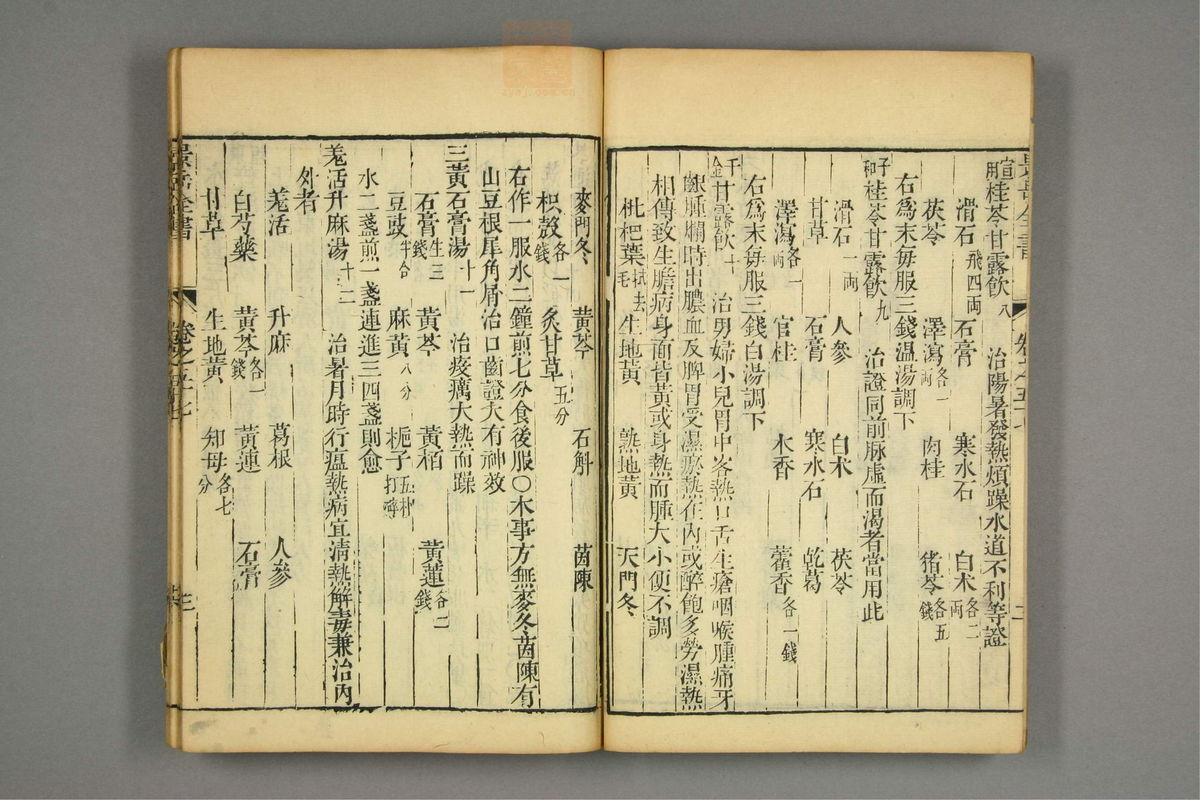 宣明桂苓甘露飲 八 治陽暑發熱煩躁水道不利等證
滑石飛四兩 石膏 寒水石 白朮各二兩
茯苓 澤瀉各一兩 肉桂 猪苓各五錢
右為末每服三錢温湯調下
子和桂苓甘露飲 九 治證同前脉虛而渴者當用此
滑石一兩 人參 白朮 茯苓
甘草 石膏 寒水石 乾葛
澤瀉各一兩 官桂 木香 藿香各一錢
右為末每服三錢白湯調下
千金甘露飲 十 治男婦小兒胃中客熱口舌生瘡咽喉腫痛牙
齦腫爛時出膿血及脾胃受濕瘀熱在內或醉飽多勞濕熱
相傳致生膽病身面皆黃或身熱而腫大小便不調
枇杷葉拭去毛 生地黃 熟地黃 天門冬
麥門冬 黃芩 石斛 茵陳
枳殼各一錢 炙甘草五分
右作一服水二鐘煎七分食後服○本事方無麥冬茵陳有
山豆根犀角屑治口齒證大有神效
三黃石膏湯 十一 治疫癘大熱而躁
石膏生三錢 黃芩 黃栢 黃蓮各二錢
豆豉半合 麻黃八分 梔子五枚打碎
水二盞煎一盞連進三四盞則愈
羗活升麻湯 十二 治暑月時行瘟熱病宜清熱解毒兼治內
外者
羗活 升麻 葛根 人參
白芍藥 黃芩各一錢 黃連 石膏
甘草 生地黃 知母各七分
景岳全書 卷之五十七